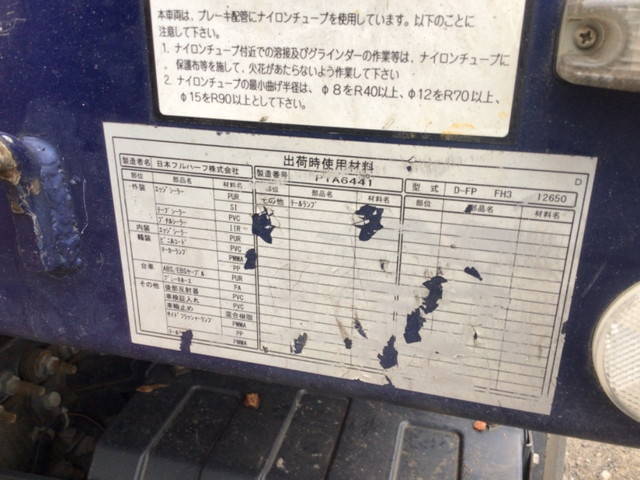 本車両は、ブレーキ配管にナイロンチューブを使用しています。以下のことに
注意して下さい。
1. ナイロンチューブ付近での溶接及びグラインダーの作業等は、ナイロンチューブに
保護布等を施して、火花があたらないよう作業して下さい
2. ナイロンチューブの最小曲げ半径は、φ8をR40以上、φ12をR70以上、
φ15をR90以上として下さい。
出荷時使用材料 D
製造者名 日本フルハーフ株式会社 製造番号 PTA6441 型式 D-FP FH3 12650
部位 部品名 材料名 部位 材料名 部位 部品名 材料名
外装 エッジシーラー PUR その他 テールランプ
SI
テープシーラー PVC
ブチルシーラー IIR
内装 エッジシーラー PUR
艤装 ビニルコード PVC
マーカーランプ PMMA
PP
台車 ABS/EBSケーブル PUR
ブレーキホース PA
その他 後部反射器 PVC
車検証入れ PVC
車輪止め 混合樹脂
サイドフラッシャーランプ PMMA
PP
PMMA